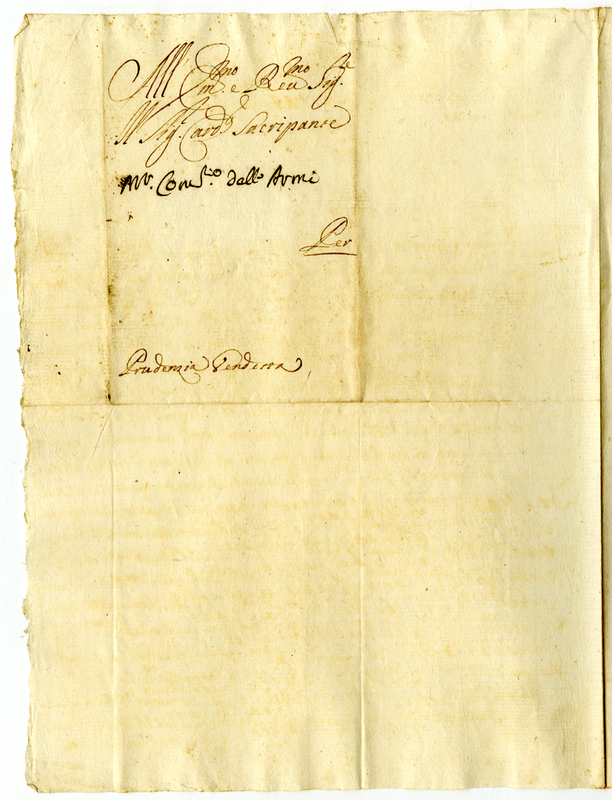 All' Em.mo e Rev.mo Sig.r
Il Sig.r Card.l Sacripante
Mr. Cons.o dall' Armi
Per
Prudenzia Vendetta